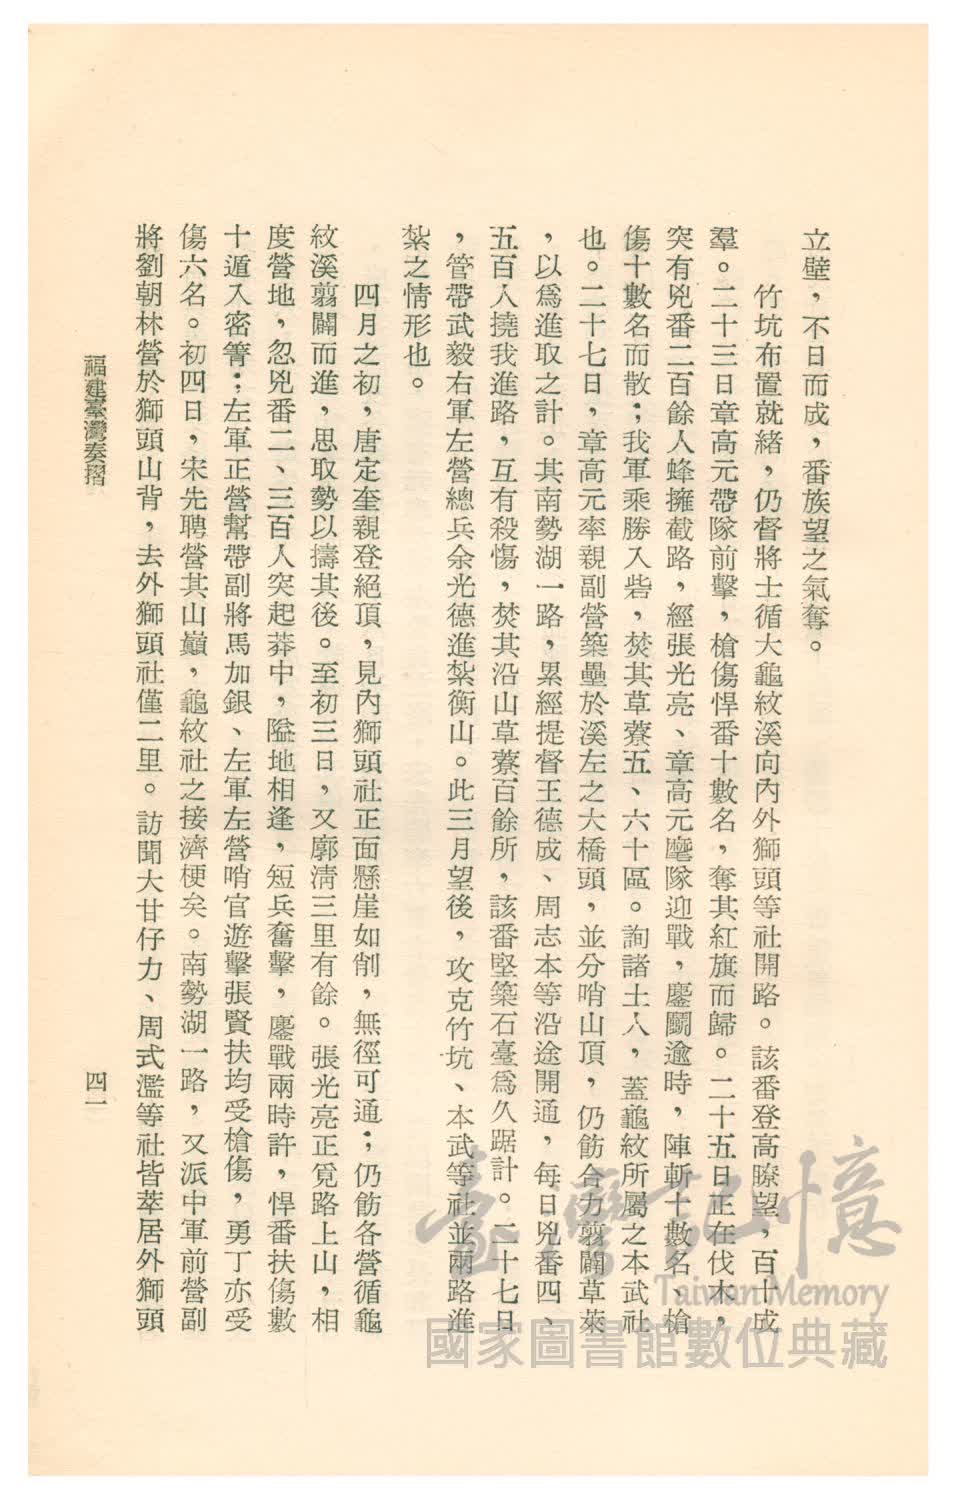 立壁，不日而成，番族望之氣奪。
竹坑布置就緒，仍督將士循大龜紋溪向內外獅頭等社開路。該番登高瞭望，百十成
羣。二十三日章高元帶隊前擊，槍傷悍番十數名，奪其紅旗而歸。二十五日正在伐木，
突有兇番二百餘人蜂擁截路，經張光亮、章高元麾隊迎戰，鏖鬭逾時，陣斬十數名、槍
傷十數名而散；我軍乘勝入砦，焚其草藔五、六十區。詢諸土人，蓋龜紋所屬之本武社
也。二十七日，章高元率親副營築壘於溪左之大橋頭，並分哨山頂，仍飭合力翦闢草萊
，以爲進取之計。其南勢湖一路，累經提督王德成、周志本等沿途開通，每日兇番四、
五百人撓我進路，互有殺傷，焚其沿山草藔百餘所，該番堅築石臺爲久踞計。二十七日
，管帶武毅右軍左營總兵余光德進紮衡山。此三月望後，攻克竹坑、本武等社並兩路進
紮之情形也。
四月之初，唐定奎親登絕頂，見內獅頭社正面懸崖如削，無徑可通；仍飭各營循龜
紋溪翦闢而進，思取勢以擣其後。至初三日，又廓清三里有餘。張光亮正覓路上山，相
度營地，忽兇番二、三百人突起莽中，隘地相逢，短兵奮擊，鏖戰兩時許，悍番扶傷數
十遁入密箐；左軍正營幫帶副將馬加銀、左軍左營哨官遊擊張賢扶均受槍傷，勇丁亦受
傷六名。初四日，宋先聘營其山巔，龜紋社之接濟梗矣。南勢湖一路，又派中軍前營副
將劉朝林營於獅頭山背，去外獅頭社僅二里。訪聞大甘仔力、周式濫等社皆萃居外獅頭
福建臺灣奏摺
四一
臺灣記憶
Taiwan Memory
國家圖書館數位典藏